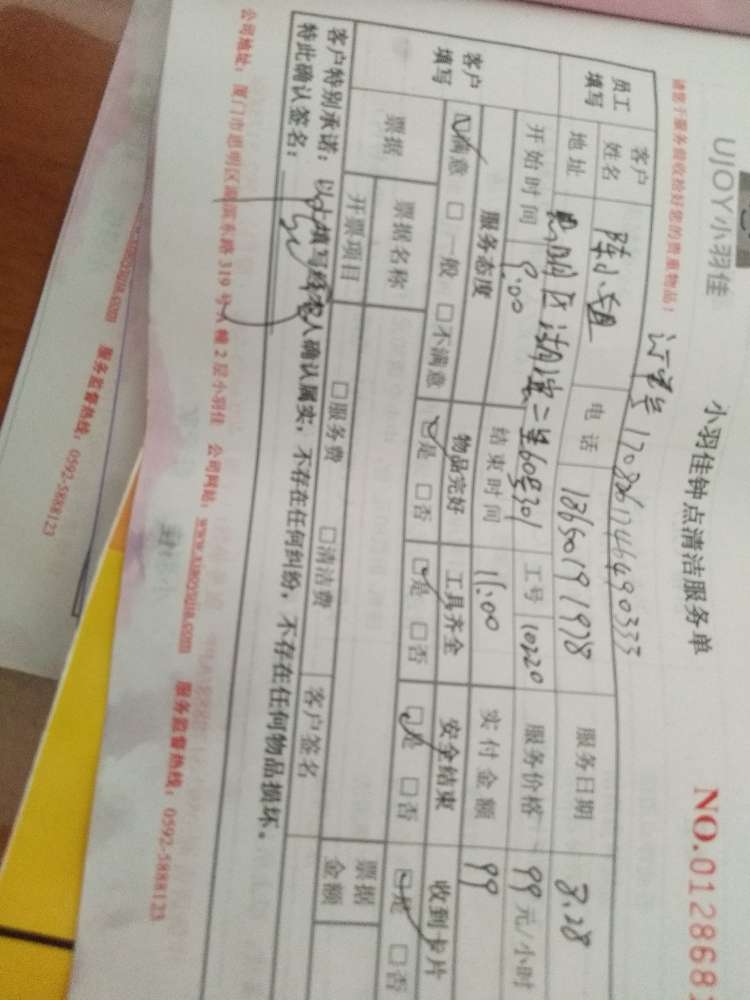 UJOY小羽佳
小羽佳钟点清洁服务单
NO.012868
请您于服务前收拾好您的贵重物品！
订单号 1708261746490333
员工填写
客户姓名 陈小姐 电话 18650191978 服务日期 8.28
地址 思明区湖滨二里60号301 工号 10220 服务价格 99 元/小时
客户填写
开始时间 9:00 结束时间 11:00 实付金额 99
服务态度 物品完好 工具齐全 安全结束 收到卡片
☑满意 □一般 □不满意 ☑是 □否 ☑是 □否 ☑是 □否 ☑是 □否
票据 票据名称 票据金额
开票项目 □服务费 □清洁费 客户签名
客户特别承诺：以上填写经本人确认属实，不存在任何纠纷，不存在任何物品损坏。
特此确认签名：
公司地址：厦门市思明区湖滨东路319号A幢2层小羽佳 公司网站：www.xiaoyujia.com 服务监督热线：0592-5888123
服务监督热线：0592-5888123